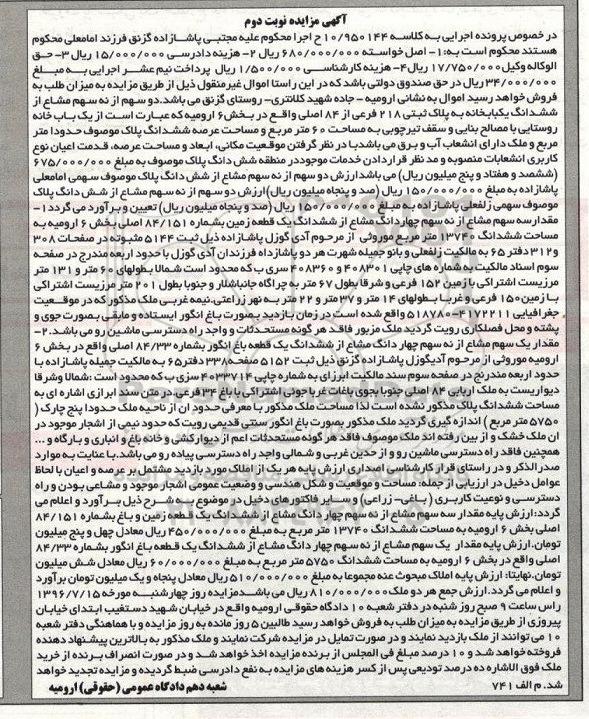 آگهی مزایده نوبت دوم
در خصوص پرونده اجرایی به کلاسه ۱۰/۹۵۰۱۴۴ ح اجرا محکوم علیه مجتبی پاشازاده گزنق فرزند امامعلی محکوم
هستند محکوم است به: ۱- اصل خواسته ۶۸۰/۰۰۰/۰۰۰ ریال ۲- هزینه دادرسی ۱۵/۰۰۰/۰۰۰ ریال ۳- حق
الوکاله وکیل ۱۷/۷۵۰/۰۰۰ ریال ۴- هزینه کارشناسی ۱/۵۰۰/۰۰۰ ریال پرداخت نیم عشر اجرایی به مبلغ
۳۴/۰۰۰/۰۰۰ ریال در حق صندوق دولتی باشد که در این راستا اموال غیرمنقول ذیل از طریق مزایده به میزان طلب به
فروش خواهد رسید اموال به نشانی ارومیه - جاده شهید کلانتری- روستای گزنق می باشد.دو سهم از نه سهم مشاع از
ششدانگ یکبابخانه به پلاک ثبتی ۲۱۸ فرعی از ۸۴ اصلی واقع در بخش ۶ ارومیه که عبارت است از یک باب خانه
روستایی با مصالح بنایی و سقف تیرچوبی به مساحت ۶۰ متر مربع و مساحت عرصه ششدانگ پلاک موصوف حدودا متر
مربع و ملک دارای انشعاب آب و برق می باشد با در نظر گرفتن موقعیت مکانی، ابعاد و مساحت عرصه، قدمت اعیان نوع
کاربری انشعابات منصوبه و مد نظر قراردادن خدمات موجود در منطقه شش دانگ پلاک موصوف به مبلغ ۶۷۵/۰۰۰/۰۰۰
(ششصد و هفتاد و پنج میلیون ریال) می باشد ارزش دو سهم از نه سهم مشاع از شش دانگ پلاک موصوف سهمی امامعلی
پاشازاده به مبلغ ۱۵۰/۰۰۰/۰۰۰ ریال (صد و پنجاه میلیون ریال) ارزش دو سهم از نه سهم مشاع از شش دانگ پلاک
موصوف سهمی زلفعلی پاشازاده به مبلغ ۱۵۰/۰۰۰/۰۰۰ ریال (صد و پنجاه میلیون ریال) تعیین و برآورد می گردد ۱-
مقدار سه سهم مشاع از نه سهم چهار دانگ مشاع از ششدانگ یک قطعه زمین بشماره ۸۴/۱۵۱ اصلی بخش ۶ ارومیه به
مساحت ششدانگ ۱۳۷۴۰ متر مربع موروثی از مرحوم آدی گوزل پاشازاده ذیل ثبت ۵۱۴۴ مثبوته در صفحات ۳۰۸
و ۳۱۲ دفتر ۶۵ به مالکیت زلفعلی و بانو جمیله شهرت هر دو پاشازاده فرزندان آدی گوزل با حدود اربعه مندرج در صفحه
سوم اسناد مالکیت به شماره های چاپی ۴۰۸۳۰۱ و ۴۰۸۳۶۰ سری ب که محدود است شمالا بطولهای ۶۰ متر و ۱۳۱ متر
مرزیست اشتراکی با زمین ۱۵۲ فرعی و شرقا بطول ۶۷ متر به چراگاه جانباشلار و جنوبا بطول ۲۰۱ متر مرزیست اشتراکی
با زمین ۱۵۰ فرعی و غربا بطولهای ۱۴ متر و ۲۷ متر و ۲۲ متر به نهر زراعتی.نیمه غربی ملک مذکور که در موقعیت
جغرافیایی ۴۱۷۲۲۱۱-۵۱۸۷۸۰ واقع شده است در زمان بازدید بصورت باغ انگور ایستاده و مابقی بصورت جوی و
پشته و محل فصلکاری رویت گردید ملک مزبور فاقد هر گونه مستحدثات و واجد راه دسترسی ماشین رو می باشد. ۲-
مقدار یک سهم مشاع از نه سهم چهار دانگ مشاع از ششدانگ یک قطعه باغ انگور بشماره ۸۴/۳۳ اصلی واقع در بخش ۶
ارومیه موروثی از مرحوم آدیگوزل پاشازاده گزنق ذیل ثبت ۵۱۵۲ صفحه ۳۳۸ دفتر ۶۵ به مالکیت جمیله پاشازاده با
حدود اربعه مندرج در صفحه سوم سند مالکیت ابرازی به شماره چاپی ۴۰۳۳۷۱۱۴ سری ب که محدود است : شمالا وشرقا
دیواریست به ملک اربابی ۸۴ اصلی جنوبا بجوی باغات غربا جوئی اشتراکی با باغ ۳۴ فرعی در متن سند ابرازی اشاره ای به
مساحت ششدانگ پلاک مذکور نشده است لذا مساحت ملک مذکور با معرفی حدود ان از ناحیه ملک حدودا پنج چارک (
۵۷۵۰ متر مربع ) اندازه گیری گردید ملک مذکور بصورت باغ انگور سنتی قدیمی رویت که حدود نیمی از اشجار موجود در
ان ملک خشک و از بین رفته اند ملک موصوف فاقد هر گونه مستحدثات اعم از دیوارکشی و خانه باغ و انباری و بارگاه و ...
همچنین فاقد راه دسترسی ماشین رو و از حدین غربی و شمالی واجد راه دسترسی پیاده رو می باشد.با عنایت به موارد
صدرالذکر و در راستای قرار کارشناسی اصداری ارزش پایه هر یک از املاک مورد بازدید مشتمل بر عرصه و اعیان با لحاظ
عوامل دخیل در ارزیابی از جمله: مساحت و موقعیت و شکل هندسی و وضعیت عمومی اشجار موجود و مشاعی بودن و راه
دسترسی و نوعیت کاربری ( باغی- زراعی) و سایر فاکتورهای دخیل در موضوع به شرح ذیل برآورد و اعلام می
گردد: ارزش پایه مقدار سه سهم مشاع از نه سهم چهار دانگ مشاع از ششدانگ یک قطعه زمین و باغ بشماره ۸۴/۱۵۱
اصلی بخش ۶ ارومیه به مساحت ششدانگ ۱۳۷۴۰ متر مربع به مبلغ ۴۵۰/۰۰۰/۰۰۰ ریال معادل چهل و پنج میلیون
تومان.ارزش پایه مقدار یک سهم مشاع از نه سهم چهار دانگ مشاع از ششدانگ یک قطعه باغ انگور بشماره ۸۴/۳۳
اصلی واقع در بخش ۶ ارومیه به مساحت ششدانگ ۵۷۵۰ متر مربع به مبلغ ۶۰/۰۰۰/۰۰۰ ریال معادل شش میلیون
تومان.نهایتا: ارزش پایه املاک مبحوث عنه مجموعا به مبلغ ۵۱۰/۰۰۰/۰۰۰ ریال معادل پنجاه و یک میلیون تومان برآورد
و اعلام می گردد. ارزش جمع هر دو ملک ۸۱۰/۰۰۰/۰۰۰ می باشد مزایده روز چهارشنبه مورخه ۱۳۹۶/۷/۱۵
راس ساعت ۹ صبح روز شنبه در دفتر شعبه ۱۰ دادگاه حقوقی ارومیه واقع در خیابان شهید دستغیب ابتدای خیابان
پیروزی از طریق مزایده به میزان طلب به فروش خواهد رسید طالبین ۵ روز مانده به روز مزایده و با هماهنگی دفتر شعبه
۱۰ می توانند از ملک بازدید نمایند و در صورت تمایل در مزایده شرکت نمایند و ملک مذکور به بالاترین پیشنهاد دهنده
فروخته خواهد شد و ۱۰ درصد مبلغ فی المجلس از برنده مزایده اخذ خواهد شد و در صورت انصراف برنده از خرید
ملک فوق الاشاره ده درصد تودیعی پس از کسر هزینه های مزایده به نفع دادرسی ضبط گردیده و مزایده تجدید خواهد
شد. م الف ۷۴۱ شعبه دهم دادگاه عمومی (حقوقی) ارومیه